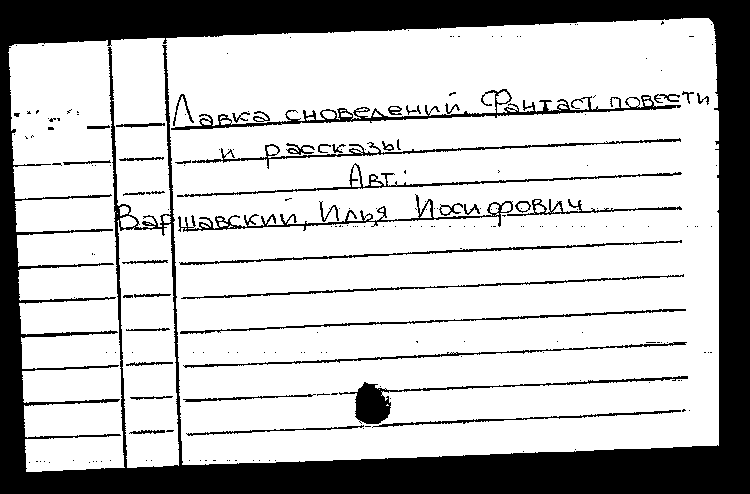 Лавка сновелений. Фантаст. повести
и рассказы.
Авт.:
Варшавский, Илья Иосифович.